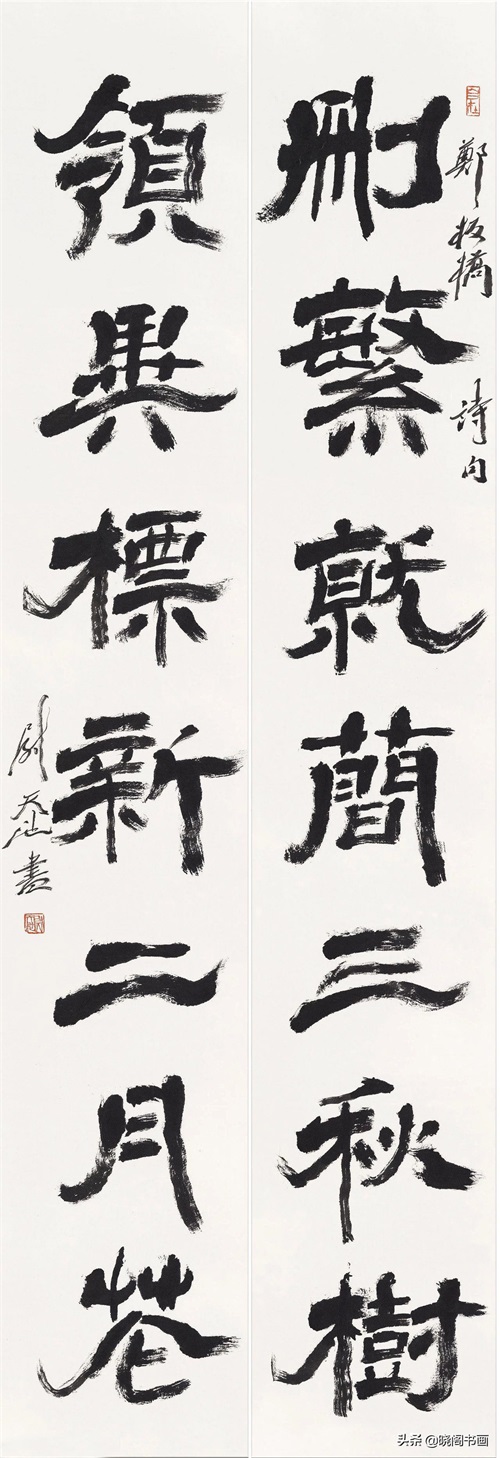 鄭板橋 詩句
刪繁就簡三秋樹
領異標新二月花
尉天池書
头条 @晓阁书画